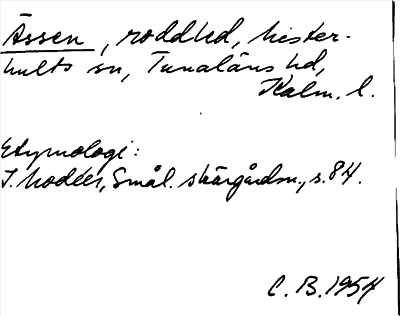 Ässen, roddled, Mister-
hults sn, Tunaläns hd,
Kalm. l.
Etymologi:
I. Modéer, Smål. skärgårdsn., s. 84.
C. B. 1954